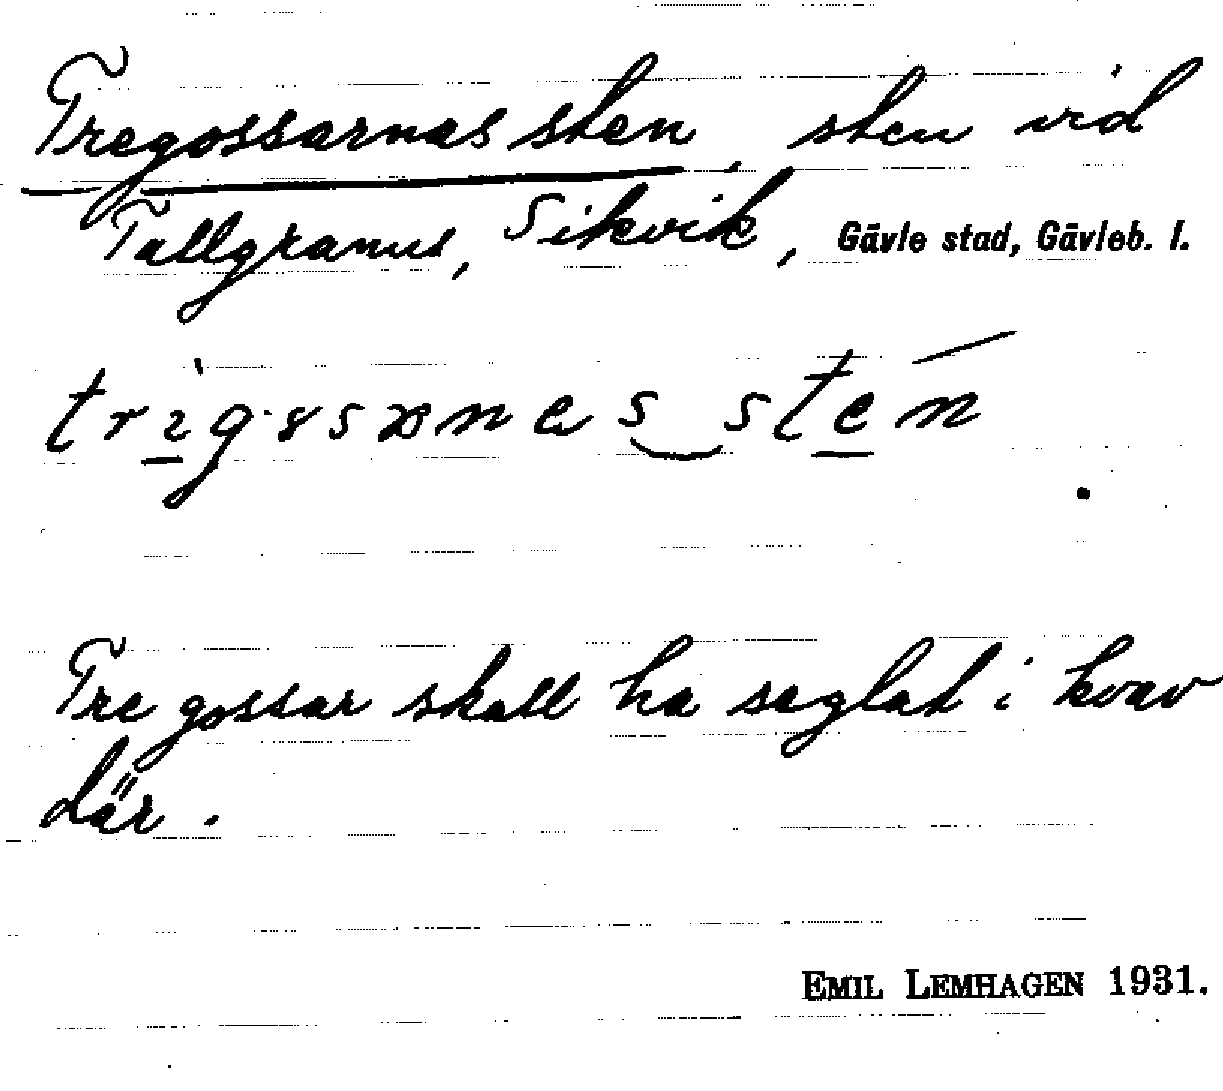 Tregossarnas sten, sten vid
Tallgranus, Sikvik, Gävle stad, Gävleb. l.
Tre gossar skall ha seglat i kvav
där.
EMIL LEMHAGEN 1931.